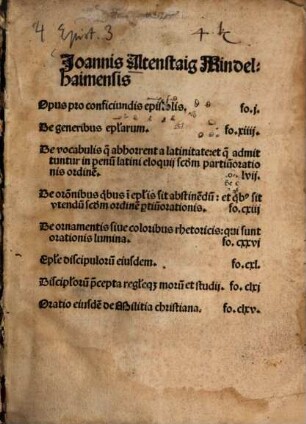 4 Epist. 3
Joannis Altenstaig Mindel-
haimensis
Opus pro conficiundis epistolis, fo.j.
De generibus eplarum. fo.xiiij.
De vocabulis q̄ abhorrent a latinitate: et q̄ admit
tuntur in penū latini eloquij scḋm partiū oratio
nis ordinē. fo. lvij.
De orōnibus qbus ī eplis sit abstinēdū: et qbꝰ sit
vtendū scḋm ordinē ptiū orationis. fo.cxiij
De ornamentis siue coloribus rhetoricis: qui sunt
orationis lumina. fo. cxxvi
Eple discipulorū eiusdem. fo.cxl.
Disciplorū p̄cepta regleqꝫ morū et studij. fo.clxj
Oratio eiusdē de Militia christiana. fo.clxv.